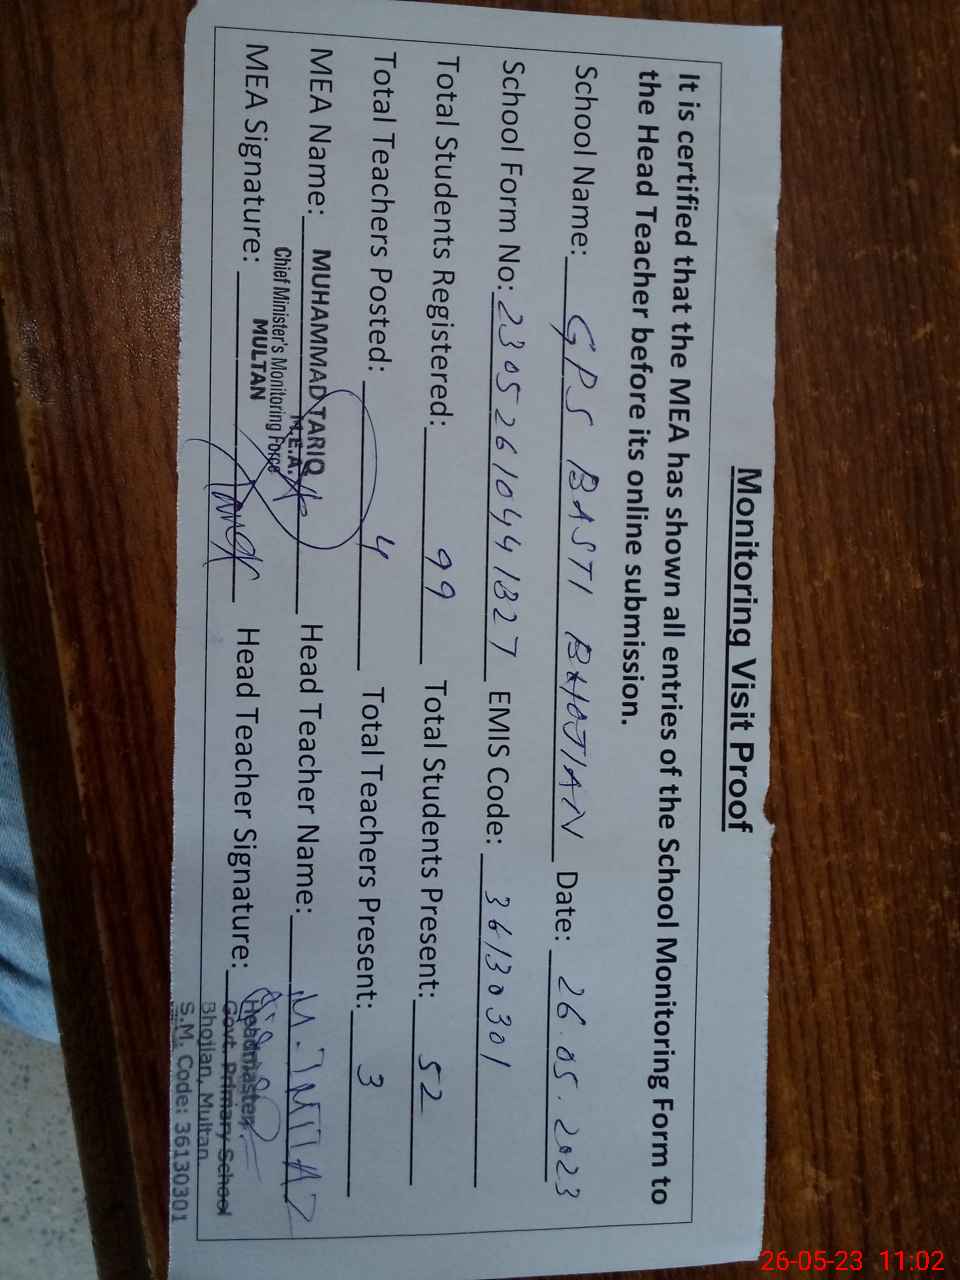 Monitoring Visit Proof
It is certified that the MEA has shown all entries of the School Monitoring Form to
the Head Teacher before its online submission.
School Name: GPS BASTI BHOJIAN Date: 26.05.2023
School Form No: 23052610441827 EMIS Code: 36130301
Total Students Registered: 99 Total Students Present: 52
Total Teachers Posted: 4 Total Teachers Present: 3
MEA Name: MUHAMMAD TARIQ Head Teacher Name: M. IMTIAZ
M.E.A.
Chief Minister's Monitoring Force
MULTAN
MEA Signature: Head Teacher Signature:
Headmaster
Govt. Primary School
Bhojian, Multan.
S.M. Code: 36130301
26-05-23 11:02